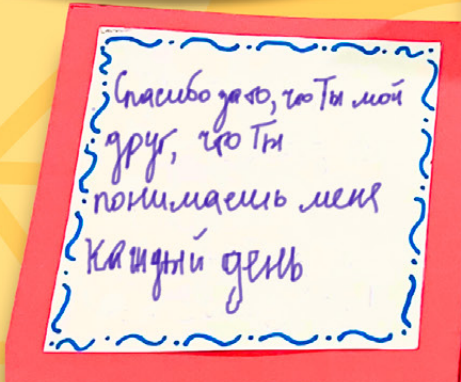 Спасибо за то, что Ты мой
друг, что Ты
понимаешь меня
каждый день